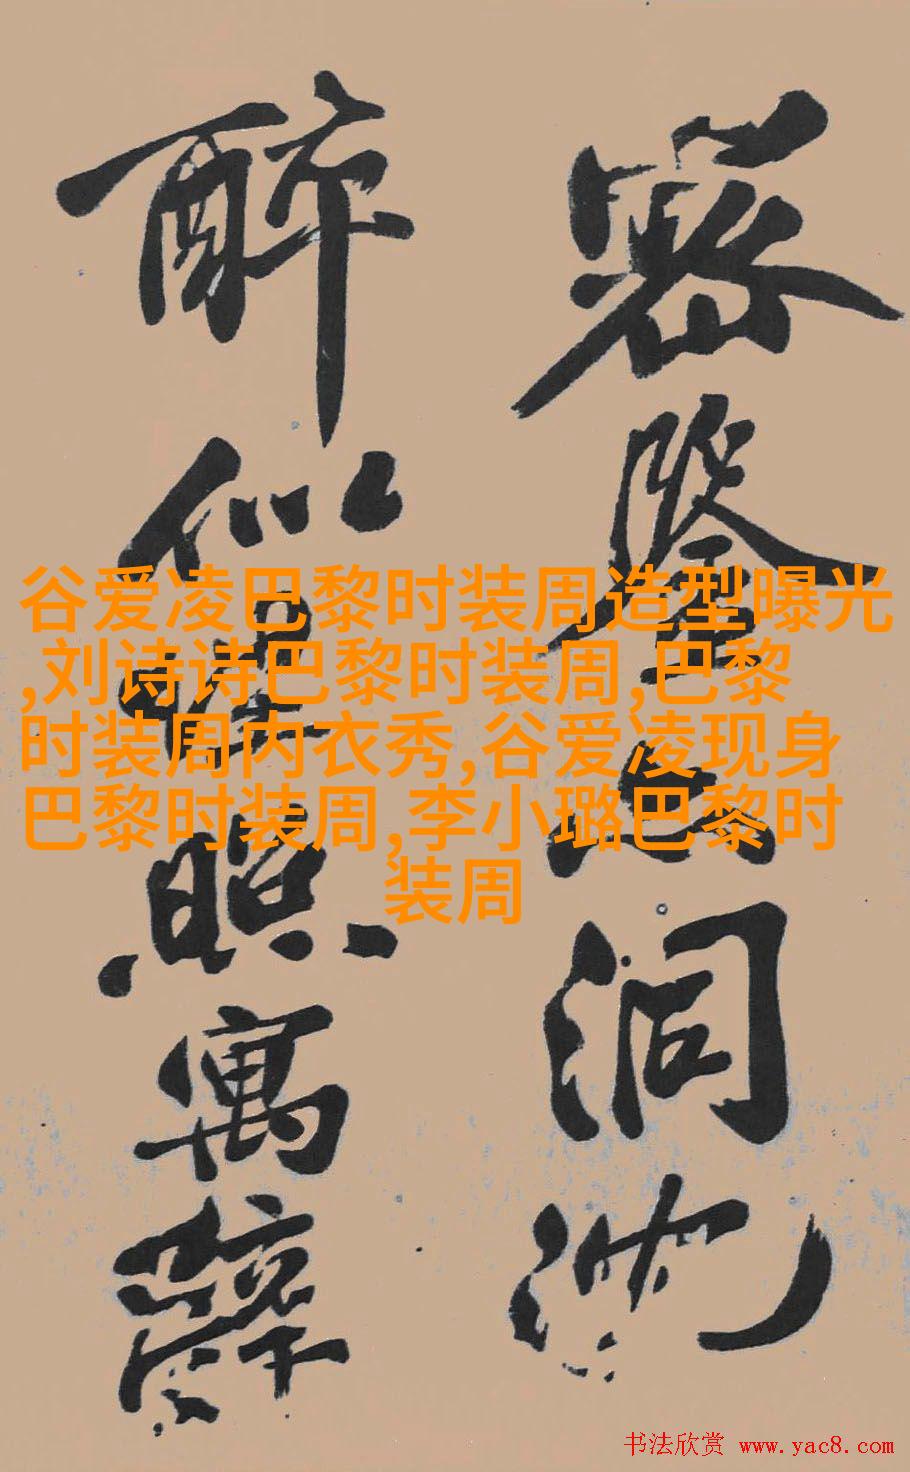 密鑒洞
醉似照寓
谷爱凌巴黎时装周造型曝光
,刘诗诗巴黎时装周,巴黎
时装周内衣秀,谷爱凌现身
巴黎时装周,李小璐巴黎时
装周
书法欣赏 www.yac8.com